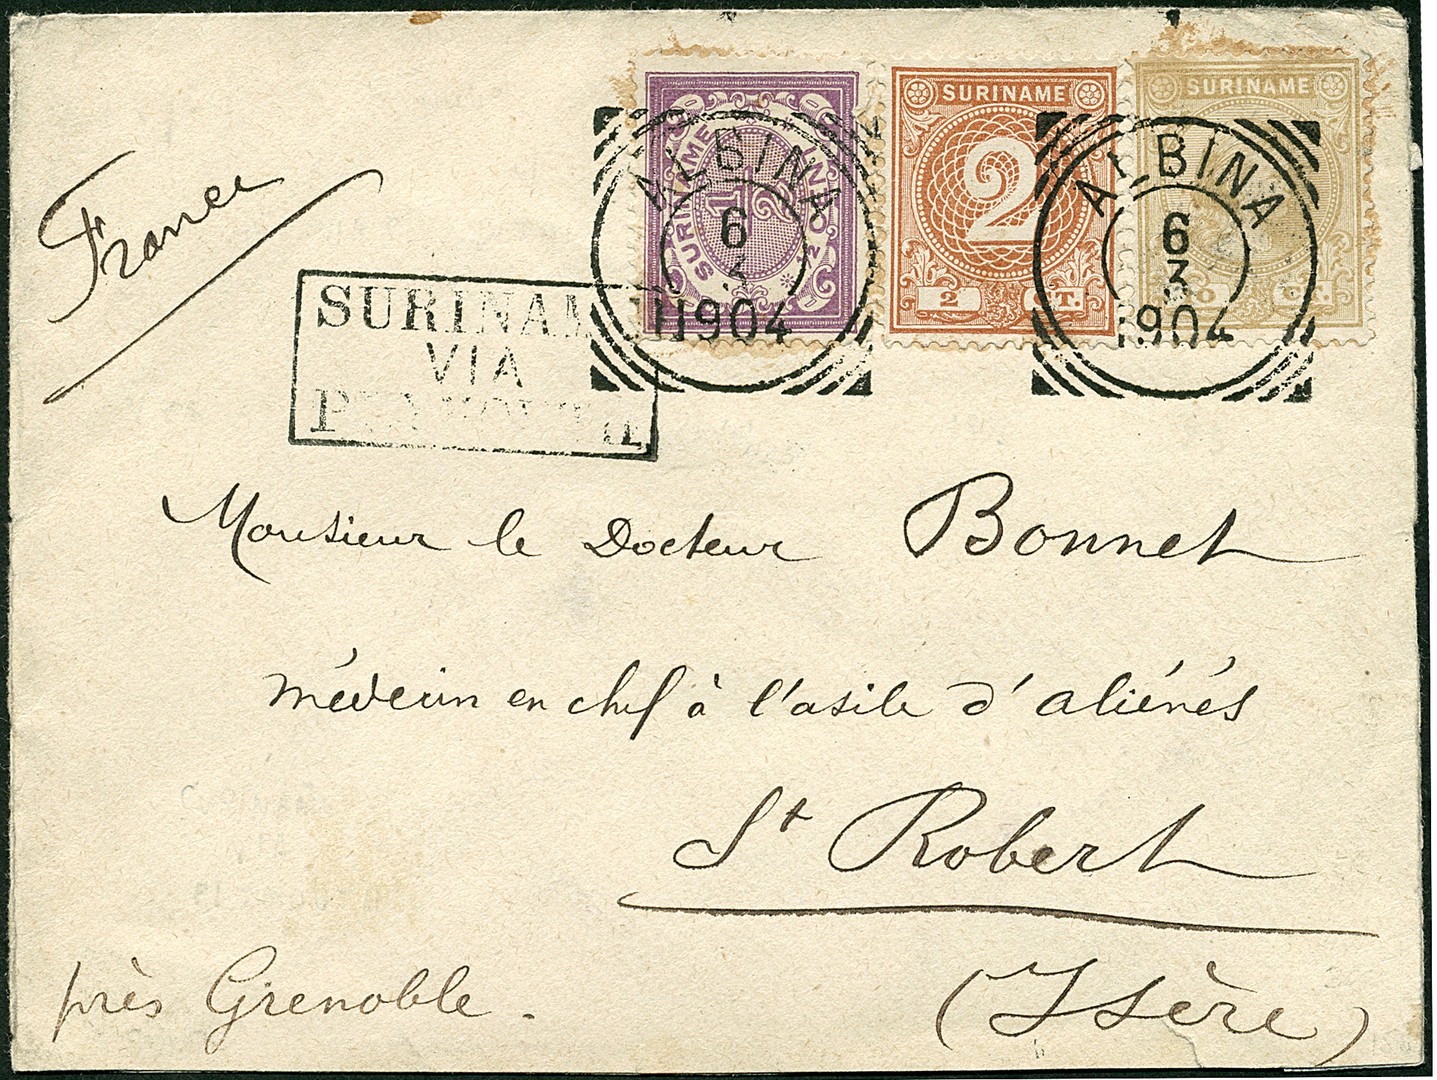 France
SURINAME
1/2
SURINAME
2
2 CT.
SURINAME
CT.
ALBINA
6
3
1904
ALBINA
6
3
1904
SURINAM
VIA
Monsieur le Docteur Bonnet
médecin en chef à l'asile d'aliénés
St Robert
près Grenoble.
(Isère)